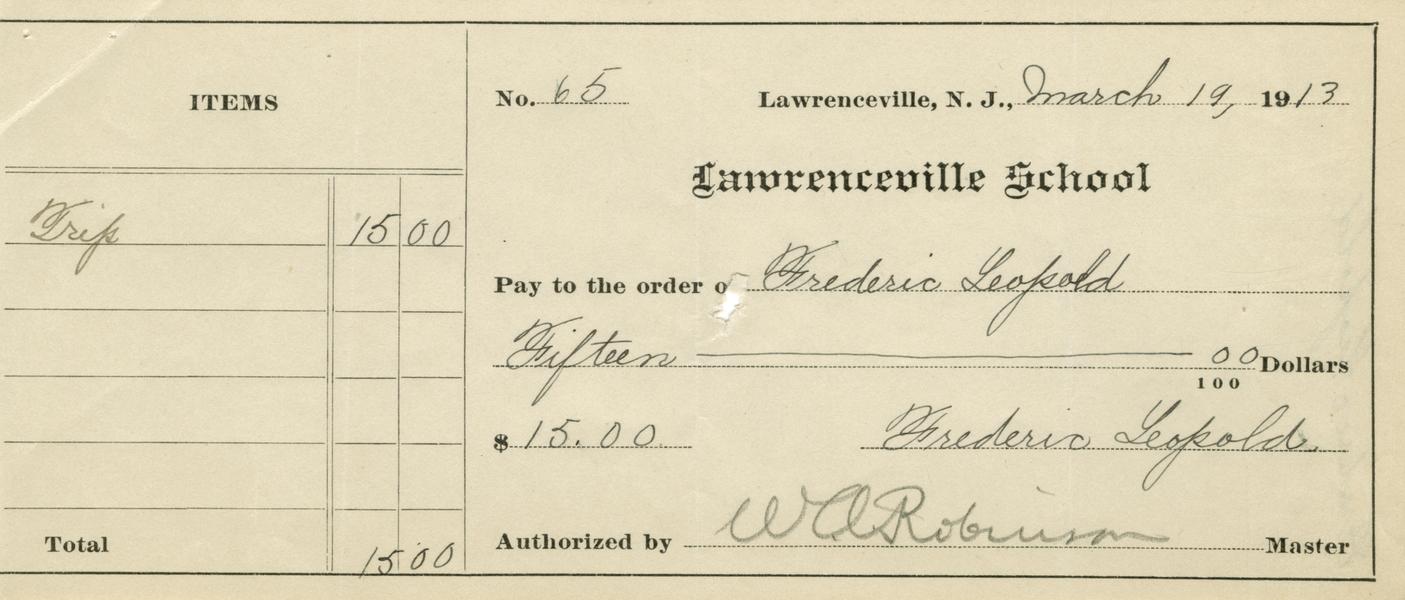 ITEMS
Trip 15 00
Total 15 00
No. 65 Lawrenceville, N. J., March 19, 1913
Lawrenceville School
Pay to the order o Frederic Leopold
Fifteen 00
100 Dollars
$ 15.00 Frederic Leopold
Authorized by W A Robinson Master